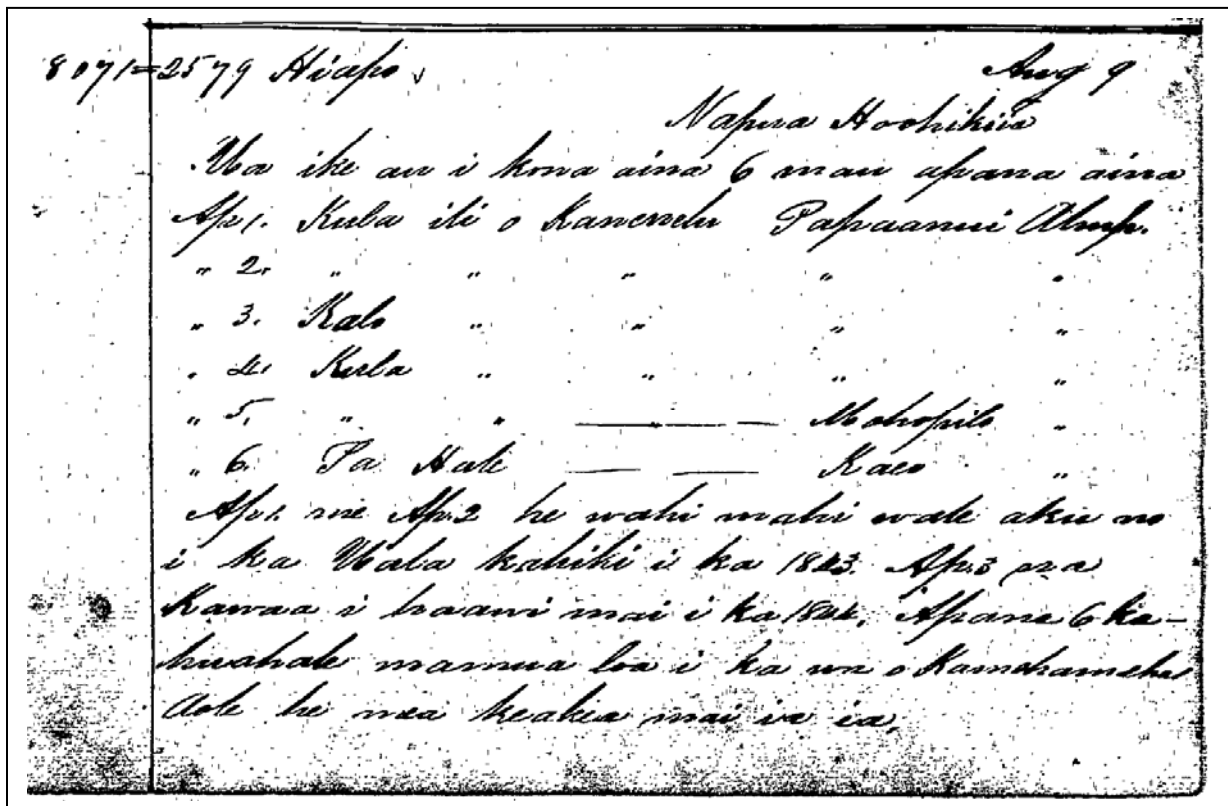 8071=2579 Hiapo Aug 9
Napua Hoohikiia
Ua ike au i kona aina 6 mau apana aina
Ap 1. Kula ili o Papaanui Ahup.
" 2. " " " " "
" 3. Kalo " " " "
" 4. Kula " " " "
" 5. " " — — — Mohopilo "
" 6. Pa Hale — — Kaeo "
Ap 1. me Ap. 2 he wahi mahi wale aku no
i ka Uala kahiki i ka 1843. Ap. 3 na
Kawaa i haawi mai i ka 1844. Apana 6 ka-
huahale mamua loa i ka wa o Kamehameha
Aole he mea keakea mai ia ia.